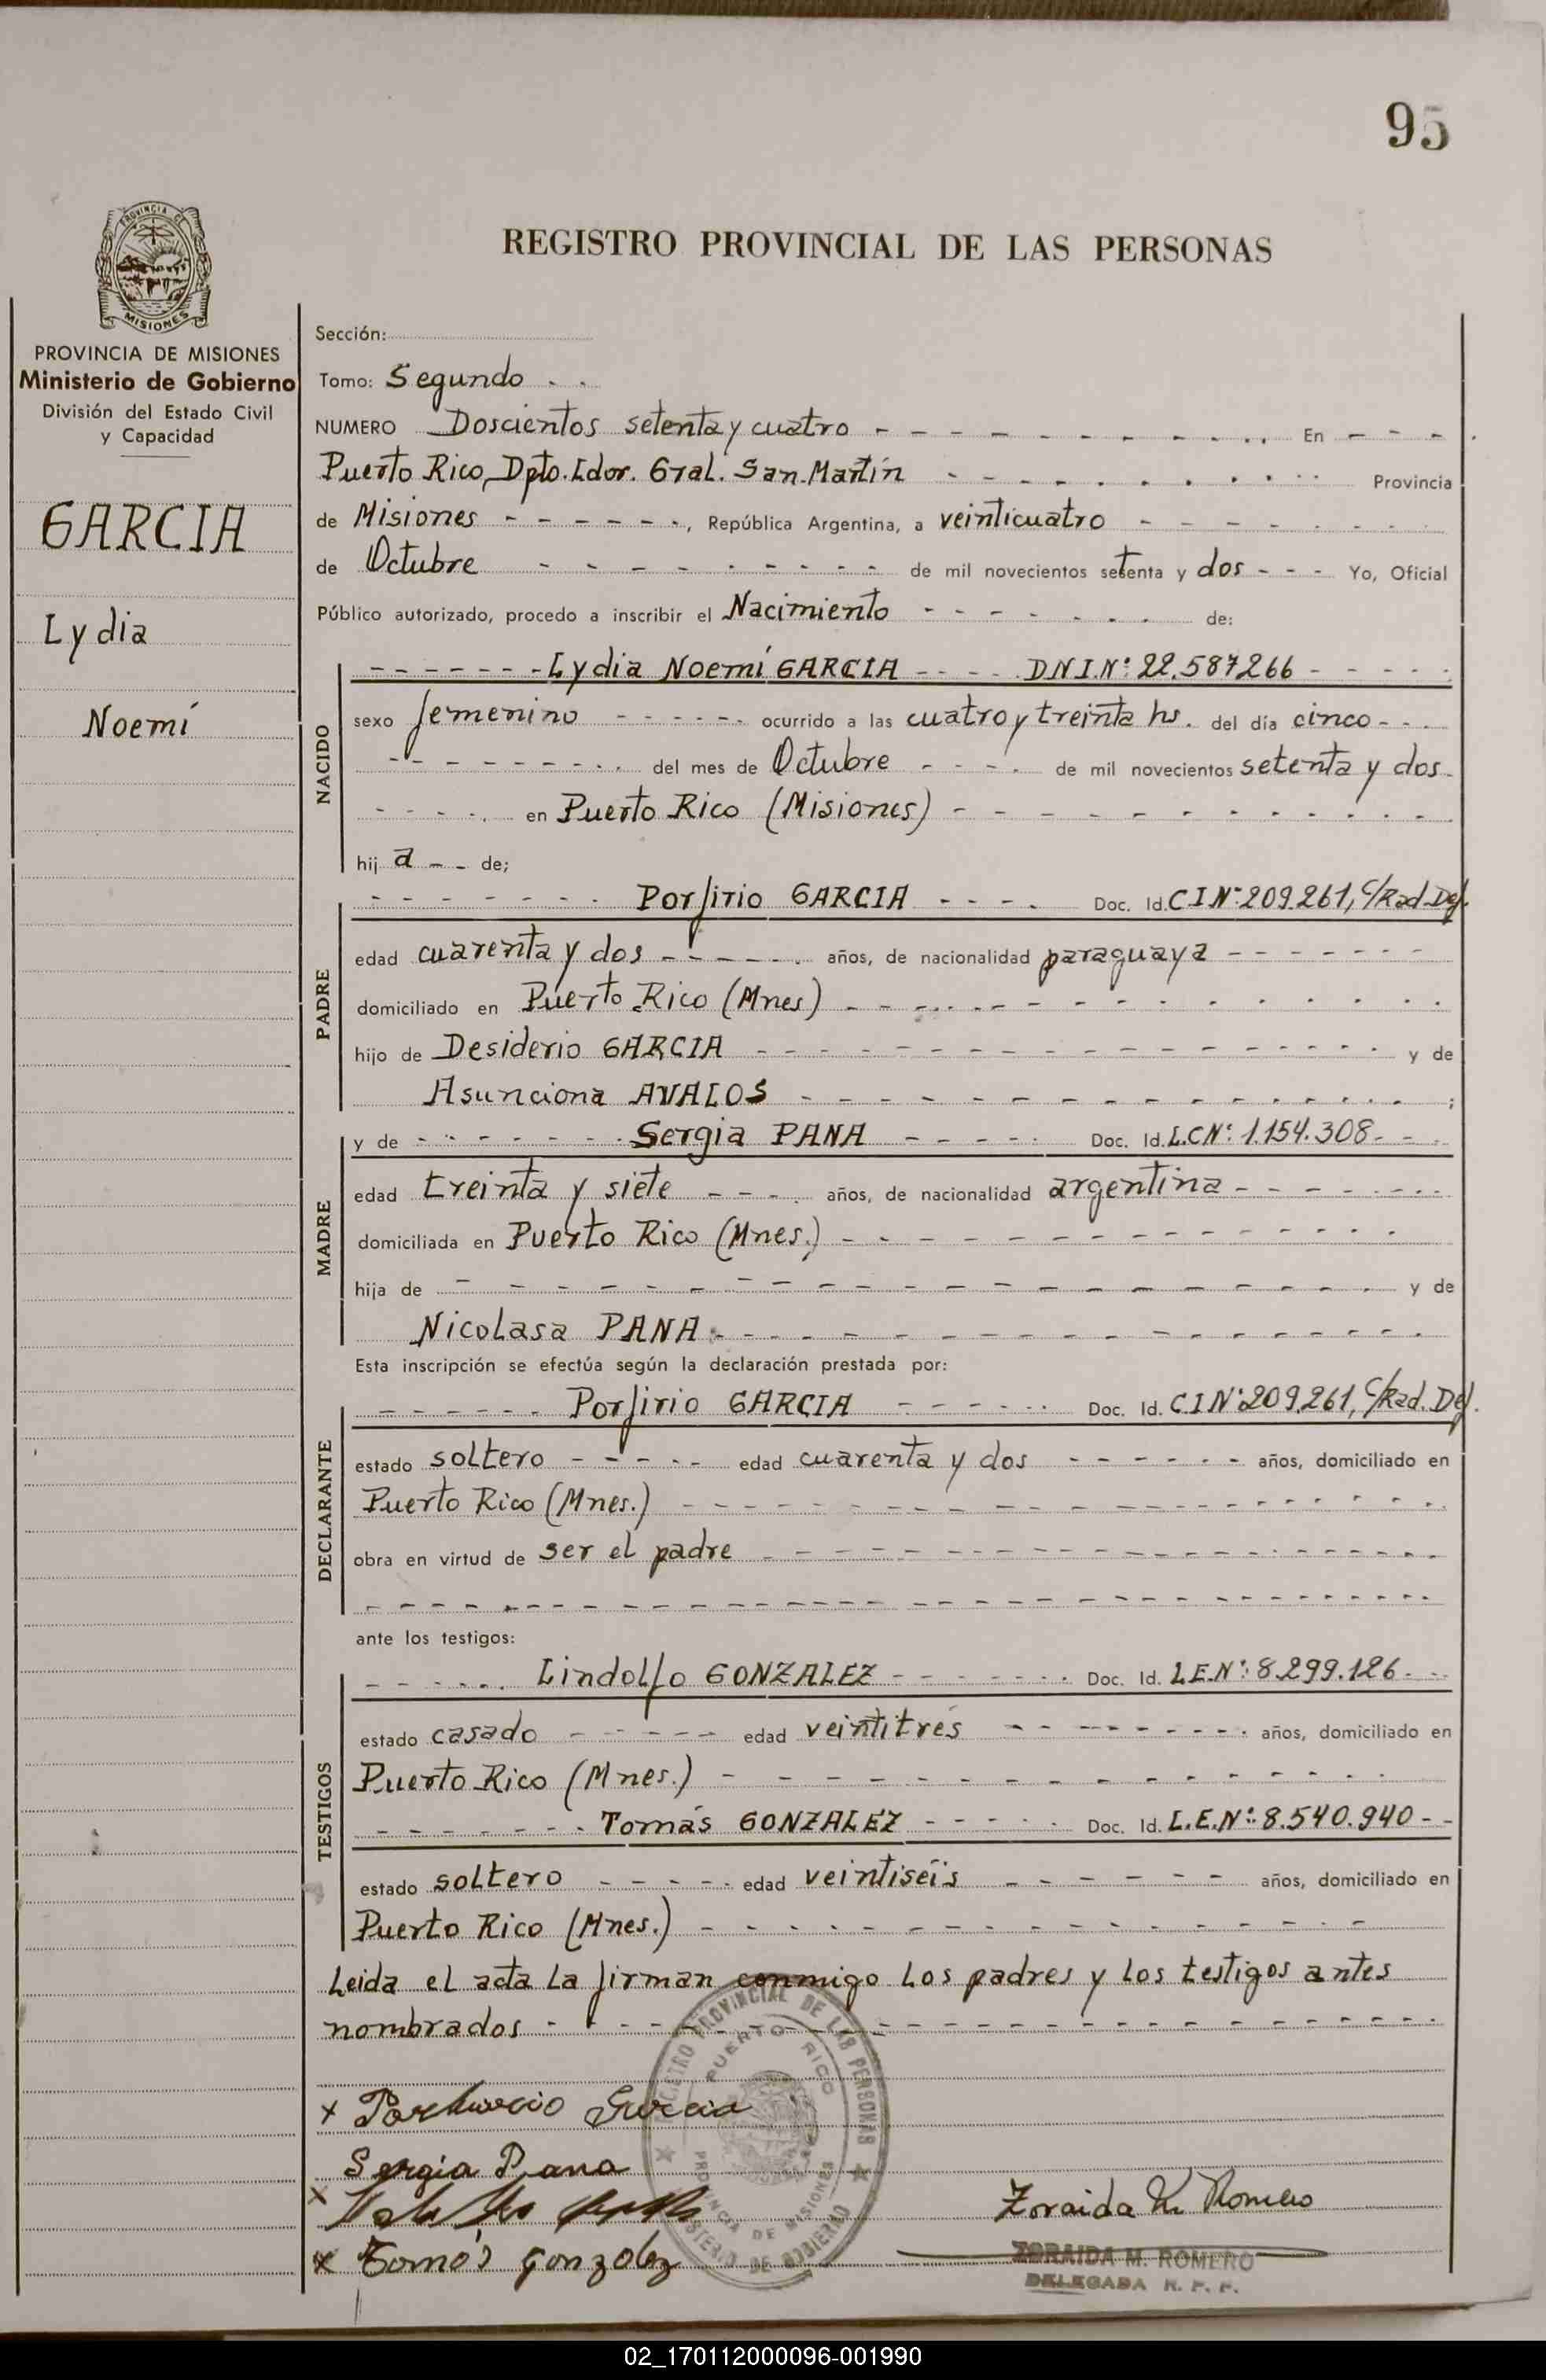 95
PROVINCIA DE
MISIONES
REGISTRO PROVINCIAL DE LAS PERSONAS
PROVINCIA DE MISIONES
Ministerio de Gobierno
División del Estado Civil
y Capacidad
GARCIA
Lydia
Noemí
Sección:
Tomo: Segundo
NUMERO Doscientos setenta y cuatro - - - En - - -
Puerto Rico, Dpto. Ldor. Gral. San Martín - - - Provincia
de Misiones - - -, República Argentina, a veinticuatro - - -
de Octubre - - - de mil novecientos setenta y dos - - - Yo, Oficial
Público autorizado, procedo a inscribir el Nacimiento - - - de:
NACIDO
- - - Lydia Noemí GARCIA - - - D.N.I.Nº: 22.587266 - - -
sexo femenino - - - ocurrido a las cuatro y treinta hs. del día cinco - - -
- - - del mes de Octubre - - - de mil novecientos setenta y dos -
- - - en Puerto Rico (Misiones) - - -
hij a - - de;
PADRE
- - - Porfirio GARCIA - - - Doc. Id. C I Nº 209.261, C/Rad. Def.
edad cuarenta y dos - - - años, de nacionalidad paraguaya - - -
domiciliado en Puerto Rico (Mnes) - - -
hijo de Desiderio GARCIA - - - y de
Asunciona AVALOS - - - ;
MADRE
y de - - - Sergia PANA - - - Doc. Id. L.C Nº: 1.154.308 - - -
edad treinta y siete - - - años, de nacionalidad argentina - - -
domiciliada en Puerto Rico (Mnes.) - - -
hija de - - - y de
Nicolasa PANA - - -
Esta inscripción se efectúa según la declaración prestada por:
DECLARANTE
- - - Porfirio GARCIA - - - Doc. Id. C I Nº 209.261, C/Rad. Def.
estado soltero - - - edad cuarenta y dos - - - años, domiciliado en
Puerto Rico (Mnes.) - - -
obra en virtud de ser el padre - - -
- - -
ante los testigos:
TESTIGOS
- - - Lindolfo GONZALEZ - - - Doc. Id. L.E.Nº: 8.299.126 - - -
estado casado - - - edad veintitrés - - - años, domiciliado en
Puerto Rico (Mnes.) - - -
- - - Tomás GONZALEZ - - - Doc. Id. L.E.Nº: 8.540.940 - -
estado soltero - - - edad veintiséis - - - años, domiciliado en
Puerto Rico (Mnes.) - - -
Leida el acta la firman conmigo los padres y los testigos antes
nombrados - - -
REGISTRO PROVINCIAL DE LAS PERSONAS
PUERTO RICO
PROVINCIA DE MISIONES
MINISTERIO DE GOBIERNO
x Garcia
Sergia Pana
x
x Tomás Gonzalez
Zoraida M. Romero
ZORAIDA M. ROMERO
DELEGADA R. P. P.
02_170112000096-001990